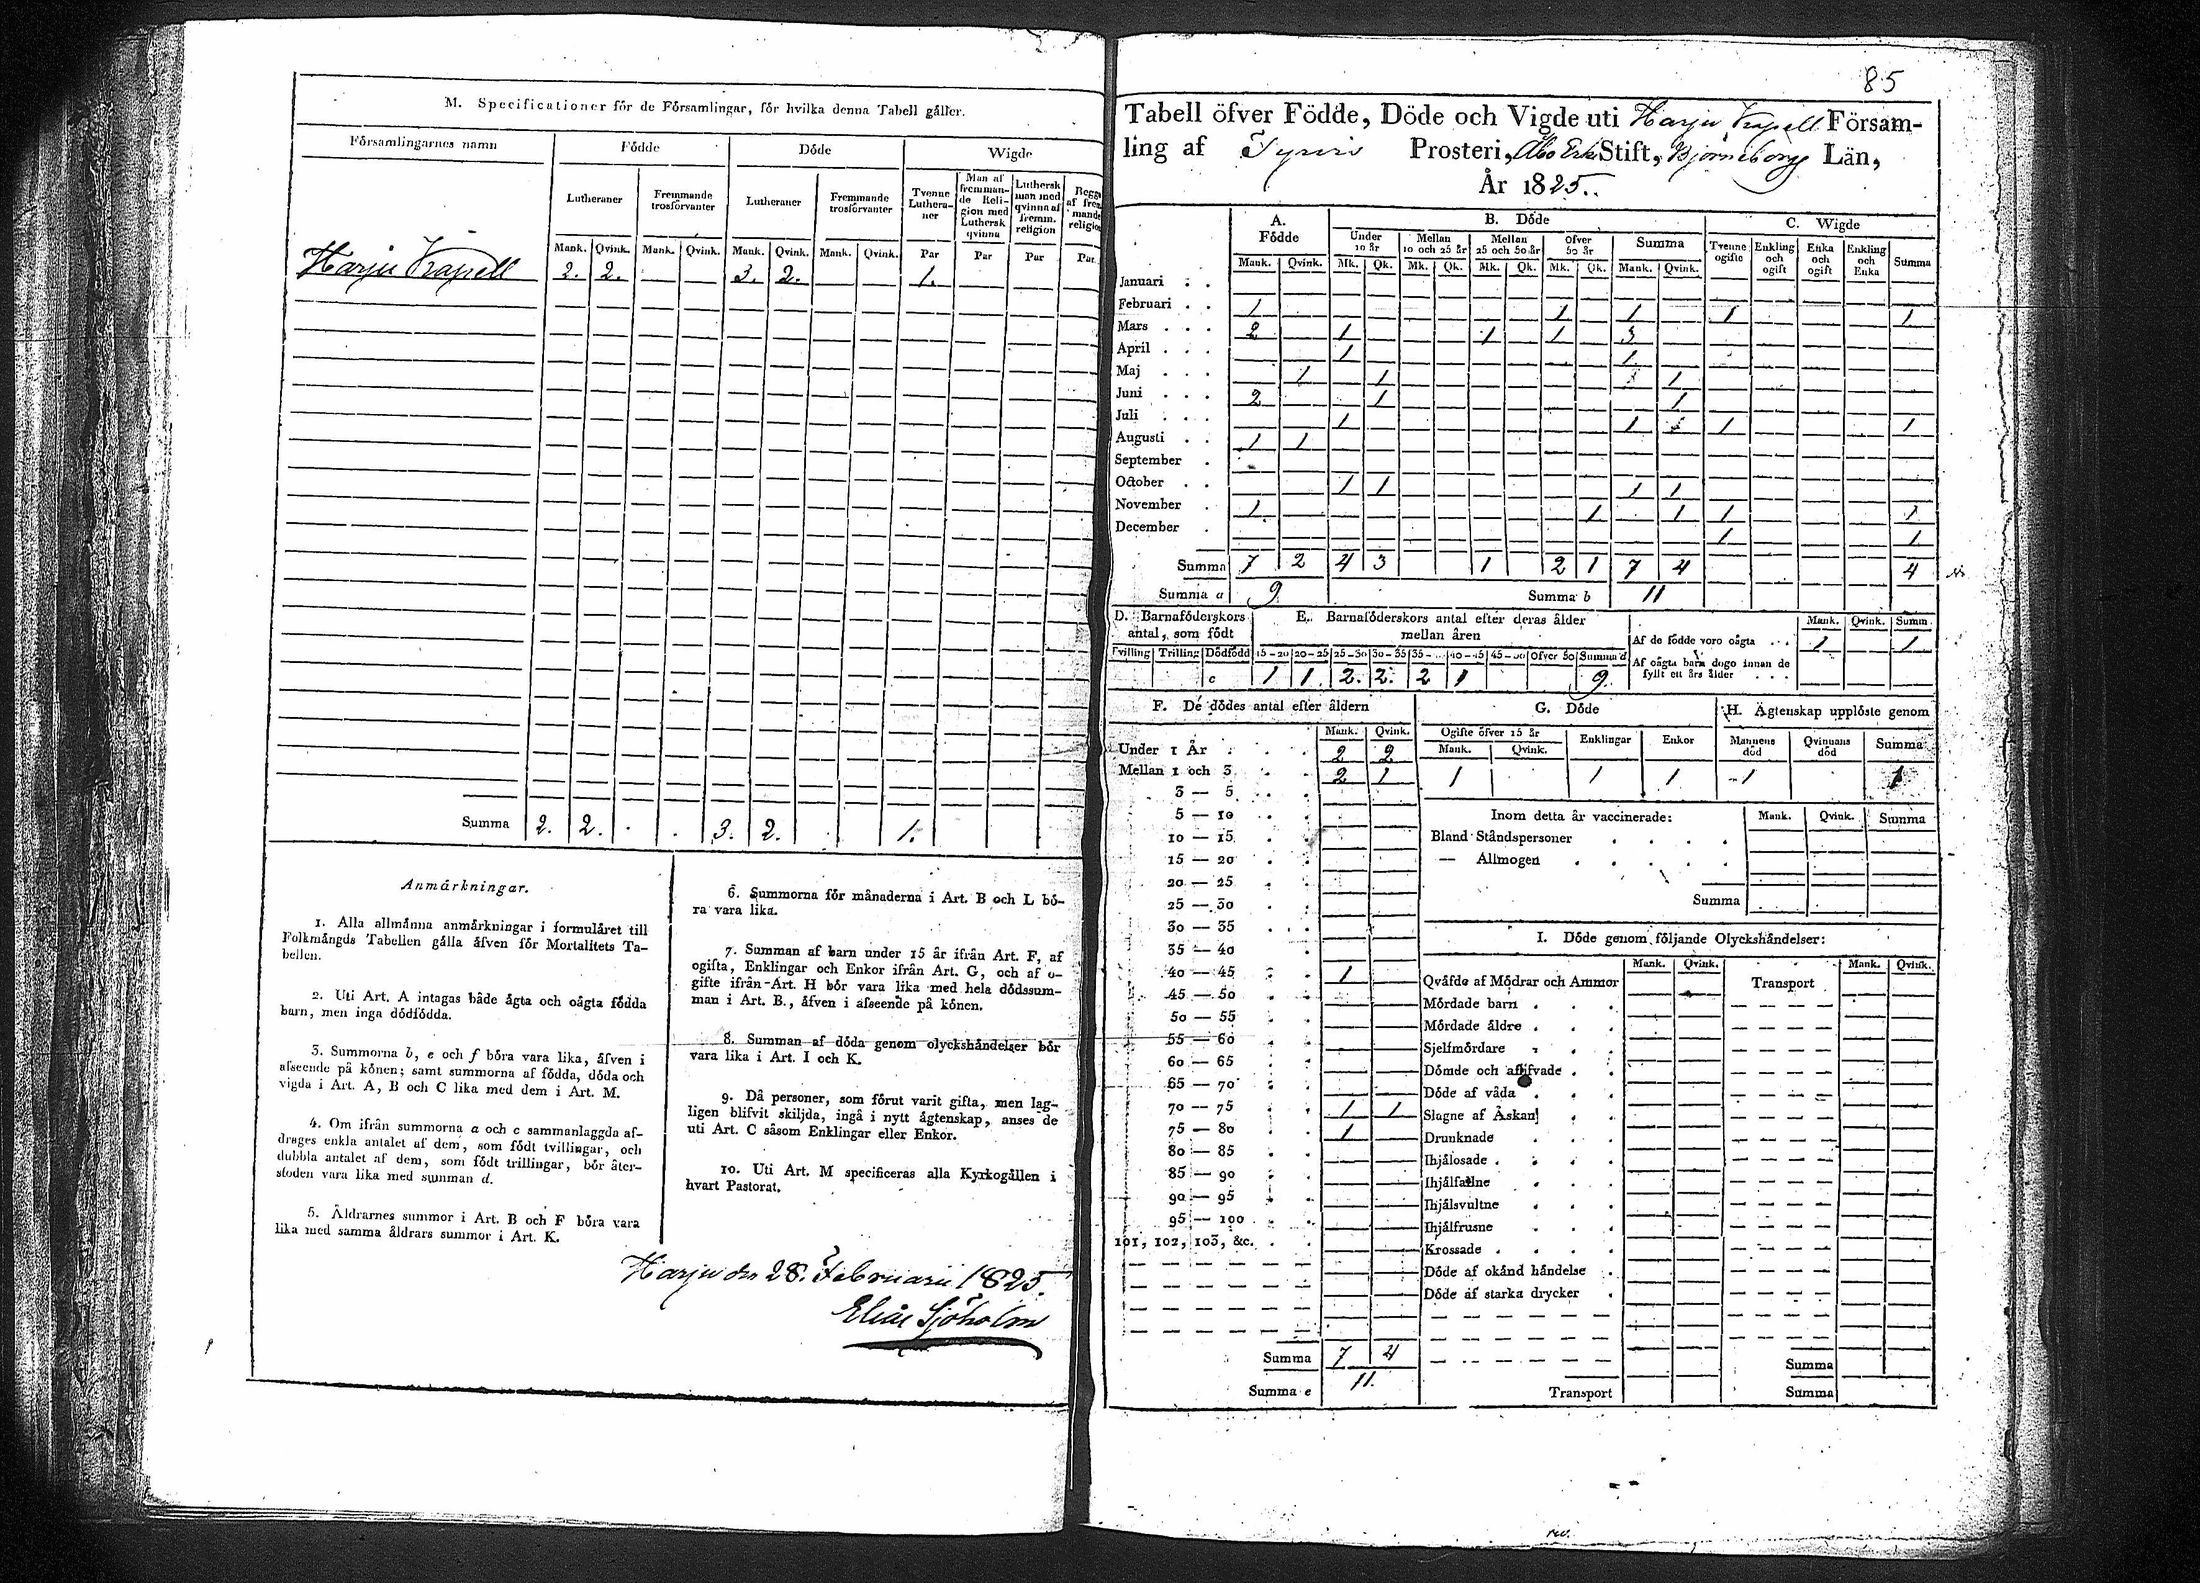 M. Specificationer för de Församlingar, för hvilka denna Tabell gäller.
Församlingarnes namn Födde Döde Wigde
Lutheraner Fremmande trosförvanter Lutheraner Fremmande trosförvanter Tvenne Luthera-ner Man af fremman-de Reli-gion med Luthersk qvinna Luthersk man med qvinna af fremm. religion
Mank. Qvink. Mank. Qvink. Mank. Qvink. Mank. Qvink. Par Par Par Par
Harju Kapell 2. 2. 3. 2. 1.
Summa 2. 2. . . 3. 2. 1.
Anmärkningar.
1. Alla allmänna anmärkningar i formuläret till
Folkmängds Tabellen gälla äfven för Mortalitets Ta-
bellen.
2. Uti Art. A intagas både ägta och oägta födda
barn, men inga dödfödda.
3. Summorna b, e och f böra vara lika, äfven i
afseende på könen; samt summorna af födda, döda och
vigda i Art. A, B och C lika med dem i Art. M.
4. Om ifrån summorna a och c sammanlaggda af-
drages enkla antalet af dem, som födt tvillingar, och
dubbla antalet af dem, som födt trillingar, bör åter-
stoden vara lika med summan d.
5. Äldrarnes summor i Art. B och F böra vara
lika med samma äldrars summor i Art. K.
6. Summorna för månaderna i Art. B och L bö-
ra vara lika.
7. Summan af barn under 15 år ifrån Art. F, af
ogifta, Enklingar och Enkor ifrån Art. G, och af o-
gifte ifrån Art. H bör vara lika med hela dödssum-
man i Art. B., äfven i afseende på könen.
8. Summan af döda genom olyckshändelser bör
vara lika i Art. I och K.
9. Då personer, som förut varit gifta, men lag-
ligen blifvit skiljda, ingå i nytt ägtenskap, anses de
uti Art. C såsom Enklingar eller Enkor.
10. Uti Art. M specificeras alla Kyrkogällen i
hvart Pastorat.
Harju den 28. Februarii 1825.
Elias Sjöholm
85
Tabell öfver Födde, Döde och Vigde uti Harju Kapell Försam-
ling af Tyrvis Prosteri, Åbo Erke Stift, Björneborgs Län,
År 1825.
A. Födde B. Döde C. Wigde
Under 10 år Mellan 10 och 25 år Mellan 25 och 50 år Öfver 50 år Summa Tvenne ogifte Enkling och ogift Enka och ogift Enkling och Enka Summa
Mank. Qvink. Mk. Qk. Mk. Qk. Mk. Qk. Mk. Qk. Mank. Qvink.
Januari
Februari 1 1 1 1 1
Mars 2 1 1 1 3
April 1 1
Maj 1 1 1
Juni 2 1 1
Juli 1 1 1 1
Augusti 1 1
September
October 1 1 1 1
November 1 1 1 1 1
December 1 1
Summa 7 2 4 3 1 2 1 7 4 4
Summa a 9 Summa b 11
D. Barnaföderskors antal, som födt
Tvilling Trilling Dödfödd
c
E. Barnaföderskors antal efter deras ålder
mellan åren
15-20 20-25 25-30 30-35 35- 40-45 45-50 öfver 50 Summa d
1 1. 2. 2. 2 1 9.
Mank. Qvink. Summ.
Af de födde voro oägta 1 1
Af oägta barn dogo innan de
fyllt ett års ålder
F. De dödes antal efter åldern
Mank. Qvink.
Under 1 År 2 2
Mellan 1 och 3 2 1
3 — 5
5 — 10
10 — 15
15 — 20
20 — 25
25 — 30
30 — 35
35 — 40
40 — 45 1
45 — 50
50 — 55
55 — 60
60 — 65
65 — 70
70 — 75 1 1
75 — 80 1
80 — 85
85 — 90
90 — 95
95 — 100
101, 102, 103, &c.
Summa 7 4
Summa e 11.
G. Döde
Ogifte öfver 15 år Enklingar Enkor
Mank. Qvink.
1 1 1
H. Ägtenskap upplöste genom
Mannens död Qvinnans död Summa
1 1
Inom detta år vaccinerade: Mank. Qvink. Summa
Bland Ståndspersoner
— Allmogen
Summa
I. Döde genom följande Olyckshändelser:
Mank. Qvink. Mank. Qvink.
Qväfde af Mödrar och Ammor Transport
Mördade barn
Mördade äldre
Sjelfmördare
Dömde och aflifvade
Döde af våda
Slagne af Åskan
Drunknade
Ihjälosade
Ihjälfallne
Ihjälsvultne
Ihjälfrusne
Krossade
Döde af okänd händelse
Döde af starka drycker
Summa
Transport Summa